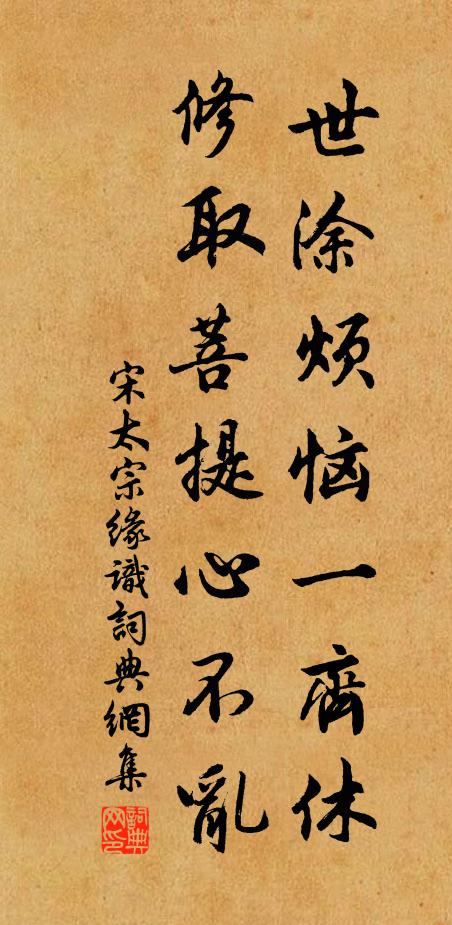 世涂烦恼一齊休
修取菩提心不亂
宋太宗缘識詞典網集
詞典网印